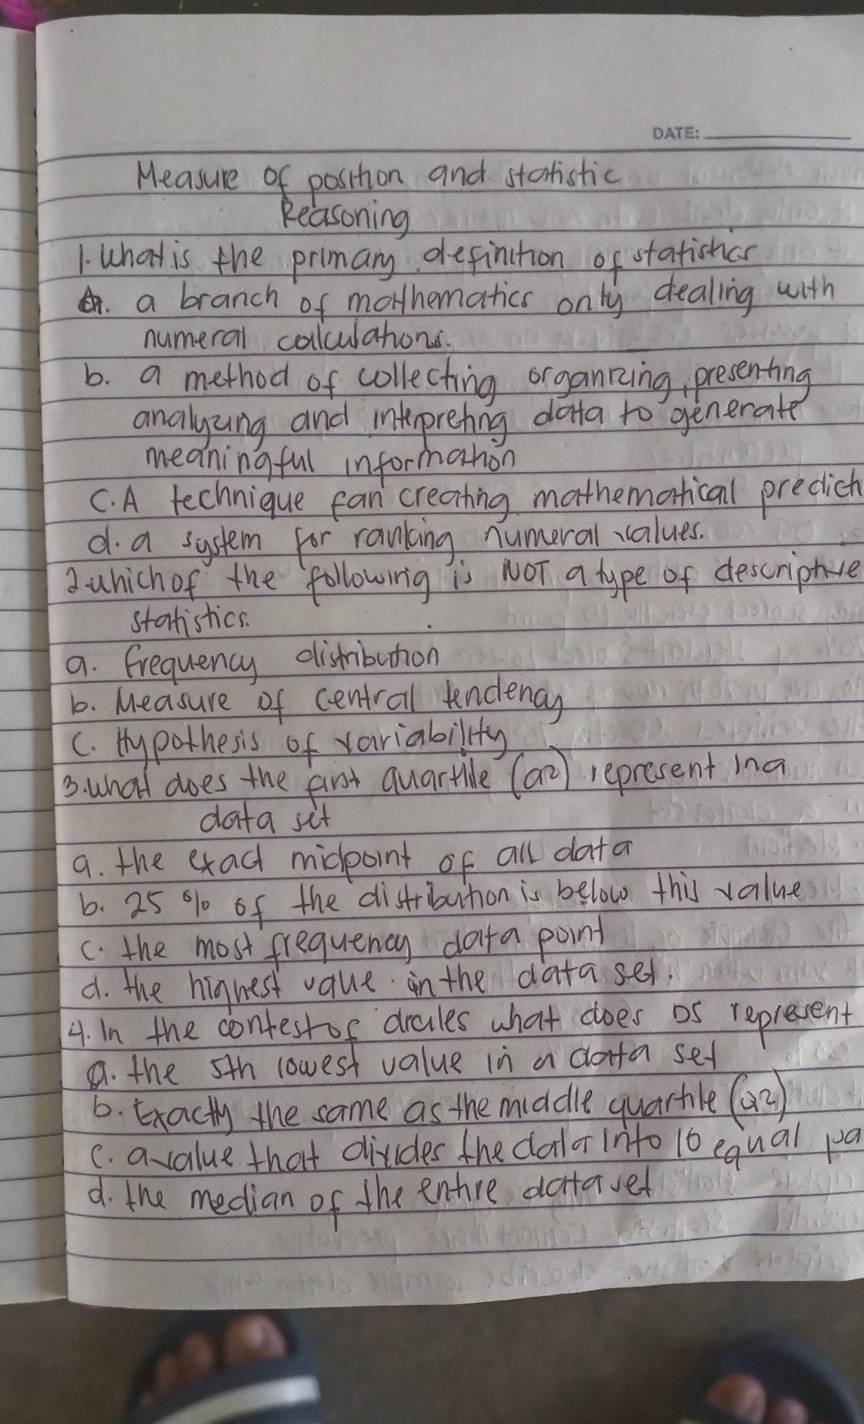 DATE:
Measure of position and statistic
Reasoning
1. What is the primary definition of statistics
a. a branch of mathematics only dealing with
numeral calculations.
b. a method of collecting organizing, presenting
analyzing and interpreting data to generate
meaningful information
C. A technique fan creating mathematical predich
d. a system for ranking numeral values.
2. which of the following is NOT a type of descriptive
statistics.
a. frequency distribution
b. Measure of central tendency
C. Hypothesis of variability
3. what does the first quartile (Q2) represent in a
data set
a. the exact midpoint of all data
b. 25 % of the distribution is below this value
c. the most frequency data point
d. the highest vaue in the data set.
4. In the contest of deciles what does D5 represent
a. the 5th lowest value in a data set
b. Exactly the same as the middle quartile (Q2)
c. a value that divides the data into 10 equal pa
d. the median of the entire data set